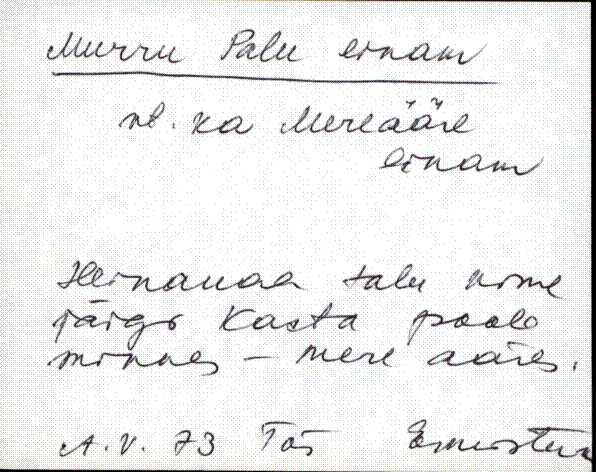 Murru Palu einam
vt. ka Mereääre
einam
Heinamaa talu nime
järgi Kasta poole
minnes – mere ääres.
A.V. 73 Tõs